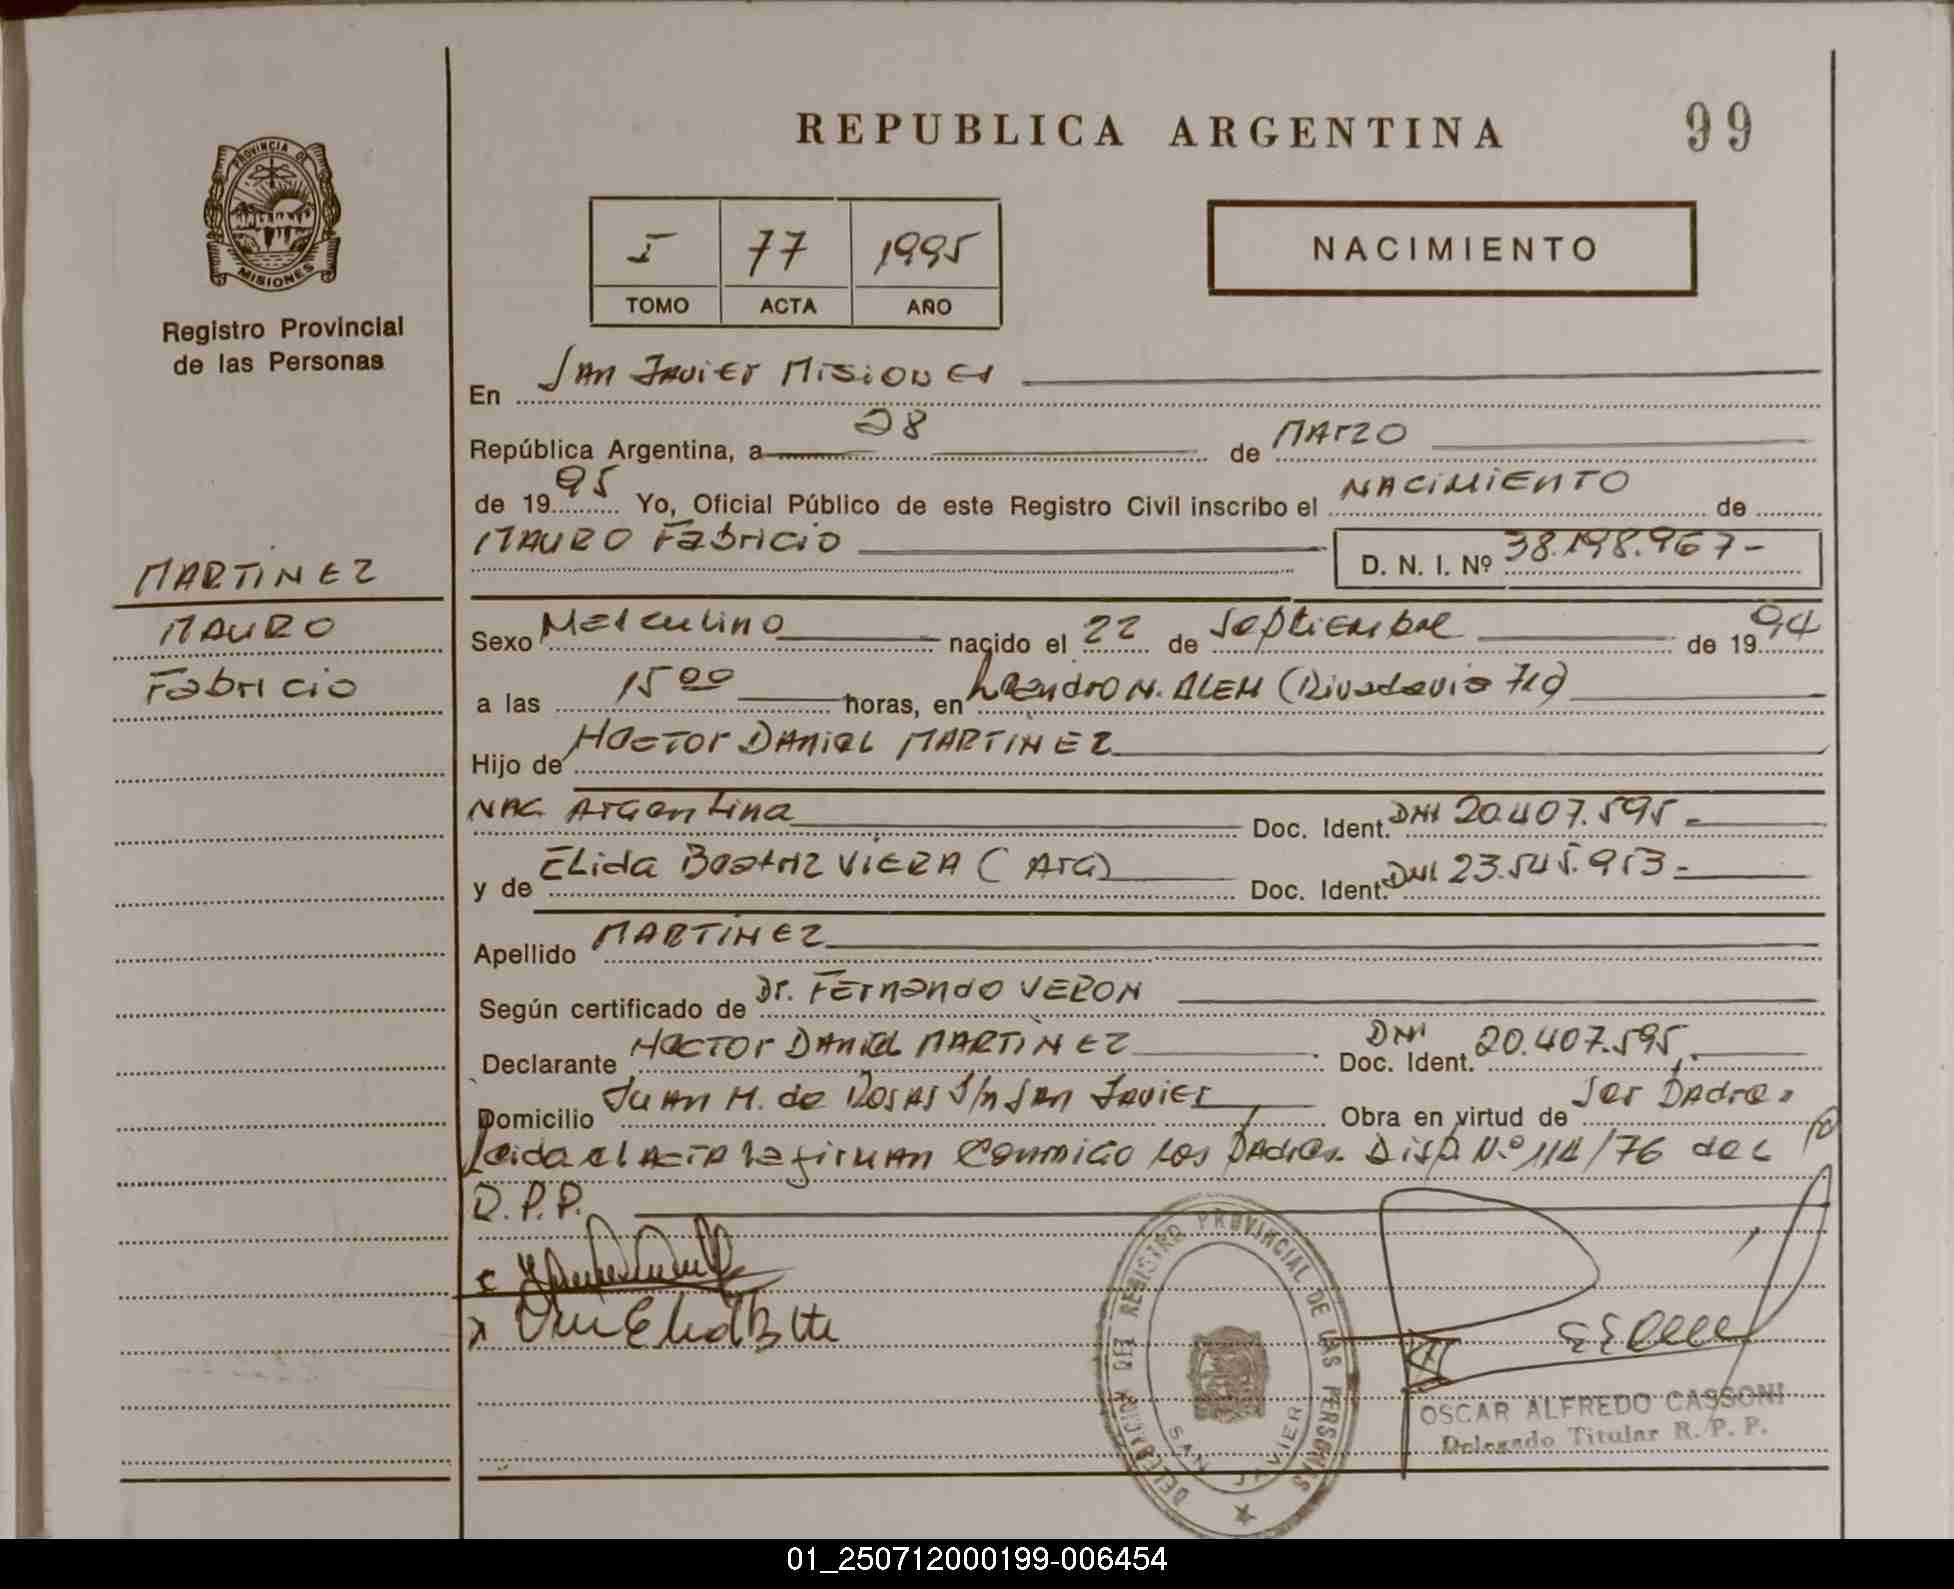 REPUBLICA ARGENTINA
99
PROVINCIA DE
MISIONES
Registro Provincial
de las Personas
I 77 1995
TOMO ACTA AÑO
NACIMIENTO
En San Javier Misiones
28
República Argentina, a de Marzo
de 1995 Yo, Oficial Público de este Registro Civil inscribo el NACIMIENTO de
MAURO Fabricio D. N. I. Nº 38.198.967-
MARTINEZ
MAURO
Fabricio
Sexo Masculino nacido el 22 de Septiembre de 1994
a las 15 00 horas, en Leandro N. ALEM (Rivadavia 710)
Hijo de Hector Daniel MARTINEZ
NAC. Argentina Doc. Ident. DNI 20.407.595.-
y de ELida Beatriz VIERA (Arg) Doc. Ident. DNI 23.545.953-
Apellido MARTINEZ
Según certificado de Dr. Fernando VERON
Declarante Hector Daniel MARTINEZ Doc. Ident. DNI 20.407.595.
Domicilio Juan M. de Rosas S/n San Javier Obra en virtud de Ser Padre.
Leida el acta la firman Conmigo los Padres. Disp. N.º 114/76 del
R.P.P.
DELEGACION DEL REGISTRO PROVINCIAL DE LAS PERSONAS
SAN JAVIER
OSCAR ALFREDO CASSONI
Delegado Titular R. P. P.
01_250712000199-006454